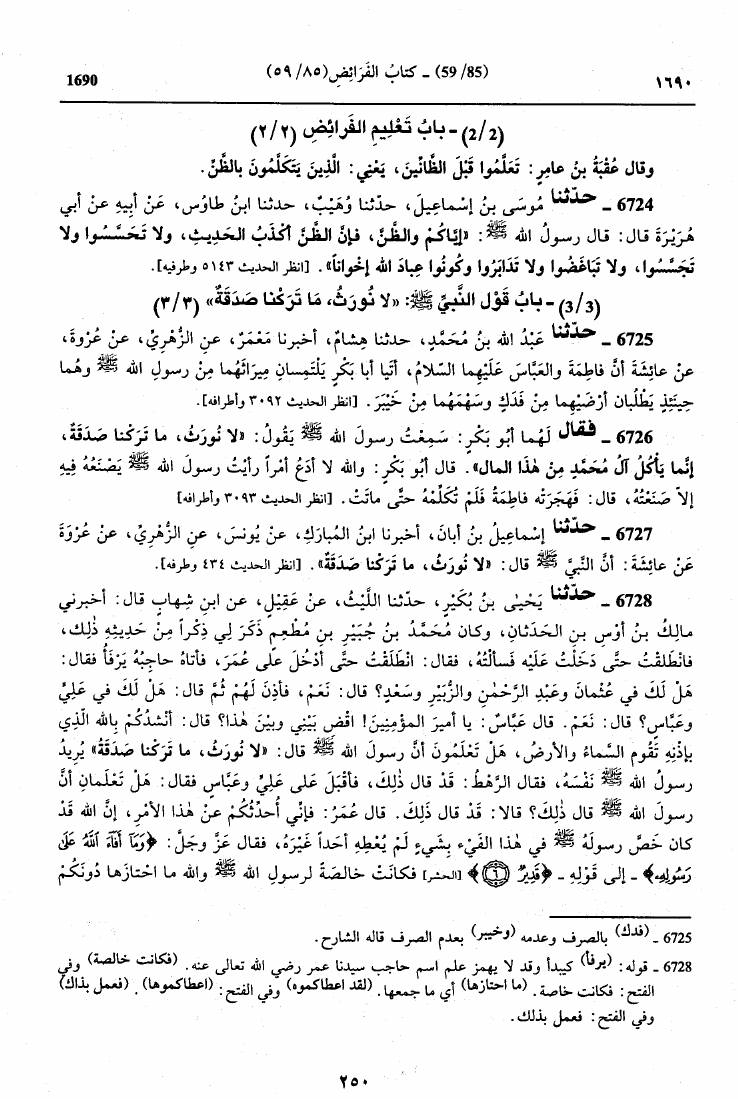 ١٦٩٠ (59/85) ـ كتابُ الفَرَائِض (٥٩/٨٥) 1690
(2/2) ـ بابُ تَعْلِيمِ الفَرائِضِ (٢/٢)
وقال عُقْبَةُ بنُ عامِرٍ: تَعَلَّمُوا قَبْلَ الظَّانِّينَ، يَعْنِي: الَّذِينَ يَتَكَلَّمُونَ بالظَّنِّ.
6724 ـ حدّثنا مُوسَى بنُ إسْماعِيلَ، حدّثنا وُهَيْبٌ، حدثنا ابنُ طاوُس، عَنْ أبِيهِ عنْ أبي
هُرَيْرَةَ قال: قال رسولُ الله ﷺ: «إيَّاكُمْ والظَّنَّ، فإنَّ الظَّنَّ أكْذَبُ الحَدِيثِ، ولا تَحَسَّسُوا ولا
تَجَسَّسُوا، ولا تَبَاغَضُوا ولا تَدَابَرُوا وكُونُوا عِبادَ الله إخْواناً». [انظر الحديث ٥١٤٣ وطرفيه].
(3/3) ـ بابُ قَوْلِ النَّبيِّ ﷺ: «لا نُورَثُ، مَا تَرَكْنا صَدَقَةٌ» (٣/٣)
6725 ـ حدّثنا عَبْدُ الله بنُ مُحَمَّدٍ، حدثنا هِشامٌ، أخبرنا مَعْمَرٌ، عنِ الزُّهْرِيِّ، عنْ عُرْوَةَ،
عنْ عائِشَةَ أنَّ فاطِمَةَ والعَبَّاسَ عَلَيْهِما السّلامُ، أتَيا أبا بَكْرٍ يَلْتَمِسانِ مِيرَاثَهُما مِنْ رسولِ الله ﷺ وهُما
حِينَئِذٍ يَطْلُبان أرْضَيْهِما مِنْ فَدَكٍ وسَهْمَهُما مِنْ خَيْبَرَ. [انظر الحديث ٣٠٩٢ وأطرافه].
6726 ـ فقال لَهُما أبُو بَكْرٍ: سَمِعْتُ رسولَ الله ﷺ يَقُولُ: «لا نُورَثُ، ما تَرَكْنا صَدَقَةٌ،
إنَّما يأكُلُ آلُ مُحَمَّدٍ مِنْ هٰذا المال». قال أبُو بَكْرٍ: والله لا أدَعُ أمْراً رأيْتُ رسولَ الله ﷺ يَصْنَعُهُ فِيهِ
إلاَّ صَنَعْتُهُ، قال: فَهَجَرَتْهُ فاطِمَةُ فَلَمْ تُكَلِّمْهُ حتَّى ماتَتْ. [انظر الحديث ٣٠٩٣ وأطرافه]
6727 ـ حدّثنا إسْماعِيلُ بنُ أبانَ، أخبرنا ابنُ المُبارَكِ، عنْ يُونسَ، عنِ الزُّهْرِيِّ، عنْ عُرْوَةَ
عَنْ عائِشَةَ: أنَّ النَّبيَّ ﷺ قال: «لا نُورَثُ، ما تَرَكْنا صَدَقَةٌ». [انظر الحديث ٤٣٤ وطرفه].
6728 ـ حدّثنا يَحْيىٰ بنُ بُكَيْرٍ، حدّثنا اللَّيْثُ، عنْ عَقِيْلٍ، عن ابنِ شِهابٍ قال: أخبرني
مالِكُ بنُ أوْسِ بنِ الحَدَثانِ، وكان مُحَمَّدُ بنُ جُبَيْرِ بنِ مُطْعِمٍ ذَكَرَ لِي ذِكْراً مِنْ حَدِيثِهِ ذٰلِكَ،
فانْطَلَقْتُ حتَّى دَخَلْتُ عَلَيْه فَسألْتُهُ، فقال: انْطَلَقْتُ حتَّى أدْخُلَ على عُمَرَ، فأتاهُ حاجِبُهُ يَرْفأُ فقال:
هَلْ لَكَ في عُثْمانَ وعَبْدِ الرَّحْمٰنِ والزُّبَيْرِ وسَعْدٍ؟ قال: نَعَمْ، فأذِنَ لَهُمْ ثُمَّ قال: هَلْ لَكَ في عَلِيٍّ
وعَبَّاسٍ؟ قال: نَعَمْ. قال عَبَّاسٌ: يا أمِيرَ المُؤْمِنِينَ! اقْضِ بَيْنِي وبَيْنَ هٰذا؟ قال: أنْشدُكُمْ بالله الَّذِي
بإذْنِهِ تَقُومِ السَّماءُ والأرضُ، هَلْ تَعْلَمُونَ أنَّ رسولَ الله ﷺ قال: «لا نُورَثُ، ما تَرَكْنا صَدَقَةٌ» يُرِيدُ
رسولُ الله ﷺ نَفْسَهُ، فقال الرَّهْطُ: قَدْ قال ذٰلِكَ، فأقْبَلَ عَلى عَلِيٍّ وعَبَّاسٍ فقال: هَلْ تَعْلَمانِ أنَّ
رسولَ الله ﷺ قال ذٰلِكَ؟ قالا: قَدْ قال ذٰلِكَ. قال عُمَرُ: فإنِّي أُحدِّثُكُمْ عنْ هٰذا الأمْرِ، إنَّ الله قَدْ
كان خَصَّ رسولَهُ ﷺ في هٰذا الفَيْءِ بِشَيْءٍ لَمْ يُعْطِهِ أحَداً غَيْرَهُ، فقال عَزَّ وجَلَّ: ﴿وَمَآ أَفَآءَ ٱللَّهُ عَلَىٰ
رَسُولِهِۦ﴾ ـ إلى قَوْلِهِ ـ ﴿قَدِيرٌ ٦﴾ [الحشر] فكانَتْ خالِصةً لرسولِ الله ﷺ والله ما احْتازَها دُونَكُمْ
6725 ـ (فدك) بالصرف وعدمه (وخيبر) بعدم الصرف قاله الشارح.
6728 ـ قوله: (يرفأ) كيبدأ وقد لا يهمز علم اسم حاجب سيدنا عمر رضي الله تعالى عنه. (فكانت خالصة) وفي
الفتح: فكانت خاصة. (ما احتازها) أي ما جمعها. (لقد اعطاكموه) وفي الفتح: (اعطاكموها). (فعمل بذاك)
وفي الفتح: فعمل بذلك.
٢٥٠